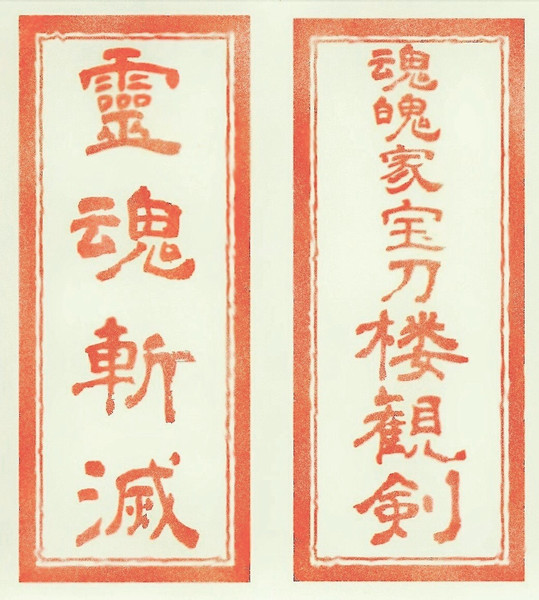 魂魄家宝刀楼観剣
靈魂斬滅